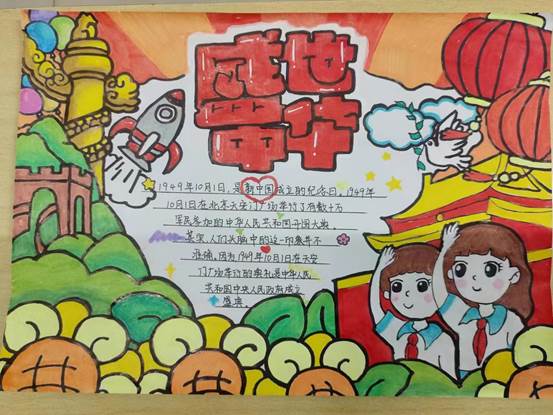 盛世华诞
1949年10月1日,是新中国成立的纪念日。1949年
10月1日在北京天安门广场举行了有数十万
军民参加的中华人民共和国开国大典,
其实人们头脑中的这一印象并不
准确,因为1949年10月1日在天安
门广场举行的典礼是中华人民
共和国中央人民政府成立
盛典